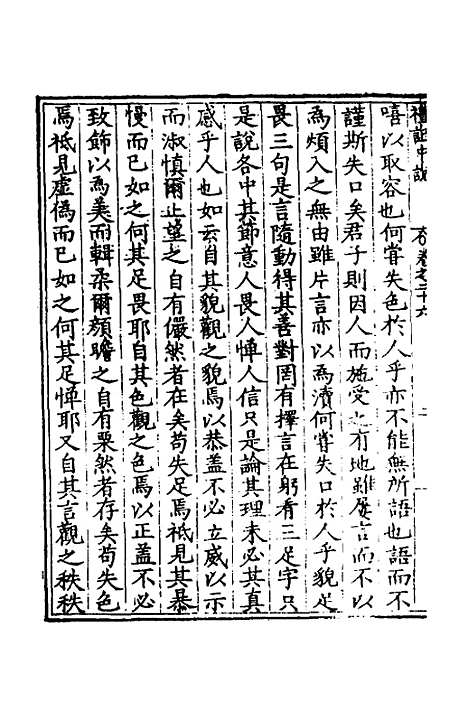 禮記中說
卷之三十六
嘻以取容也何嘗失色於人乎亦不能無所語也語而不
謹斯失口矣君子則因人而施受之有地雖屢言而不以
為煩入之無由雖片言亦以為瀆何嘗失口於人乎貌足
畏三句是言隨動得其善對罔有擇言在躬看三足字只
是說各中其節意人畏人憚人信只是論其理未必其真
感乎人也如云自其貌觀之貌焉以恭盖不必立威以示
而淑慎爾止望之自有儼然者在矣苟失足焉祗見其暴
慢而已如之何其足畏耶自其色觀之色焉以正盖不必
致飾以為美而輯柔爾顏瞻之自有栗然者存矣苟失色
焉祗見虛偽而已如之何其足憚耶又自其言觀之秩秩